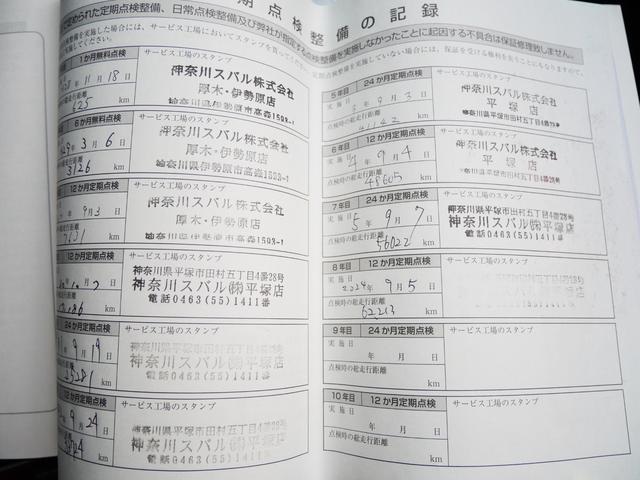 期点検整備の記録
められた定期点検整備、日常点検整備及び弊社が指定する点検整備を実施しなかったことに起因する不具合は保証修理致しません。
1か月無料点検
サービス工場のスタンプ
11月18日
625 km
神奈川スバル株式会社
厚木・伊勢原店
神奈川県伊勢原市高森1593-1
6か月無料点検
サービス工場のスタンプ
3月6日
3126 km
神奈川スバル株式会社
厚木・伊勢原店
神奈川県伊勢原市高森1593-1
12か月定期点検
サービス工場のスタンプ
9月3日
7631 km
神奈川スバル株式会社
厚木・伊勢原店
神奈川県伊勢原市高森1593-1
12か月定期点検
サービス工場のスタンプ
km
神奈川県平塚市田村五丁目4番28号
神奈川スバル㈱平塚店
電話0463(55)1411番
24か月定期点検
サービス工場のスタンプ
9月19日
km
神奈川県平塚市田村五丁目4番28号
神奈川スバル㈱平塚店
電話0463(55)1411番
12か月定期点検
サービス工場のスタンプ
9月24日
km
神奈川県平塚市田村五丁目4番28号
神奈川スバル㈱平塚店
電話0463(55)1411番
5年目 24か月定期点検
サービス工場のスタンプ
実施日 3年9月3日
点検時の総走行距離
41142 km
神奈川スバル株式会社
平塚店
神奈川県平塚市田村五丁目4番28号
6年目 12か月定期点検
サービス工場のスタンプ
実施日 4年9月4日
点検時の総走行距離
48605 km
神奈川スバル株式会社
平塚店
神奈川県平塚市田村五丁目4番28号
7年目 24か月定期点検
サービス工場のスタンプ
実施日 5年9月7日
点検時の総走行距離
56022 km
神奈川県平塚市田村五丁目4番28号
神奈川スバル㈱平塚店
電話0463(55)1411番
8年目 12か月定期点検
サービス工場のスタンプ
実施日 2024年9月5日
点検時の総走行距離
62213 km
9年目 24か月定期点検
サービス工場のスタンプ
実施日 年 月 日
点検時の総走行距離
km
10年目 12か月定期点検
サービス工場のスタンプ
実施日 年 月 日
点検時の総走行距離
km